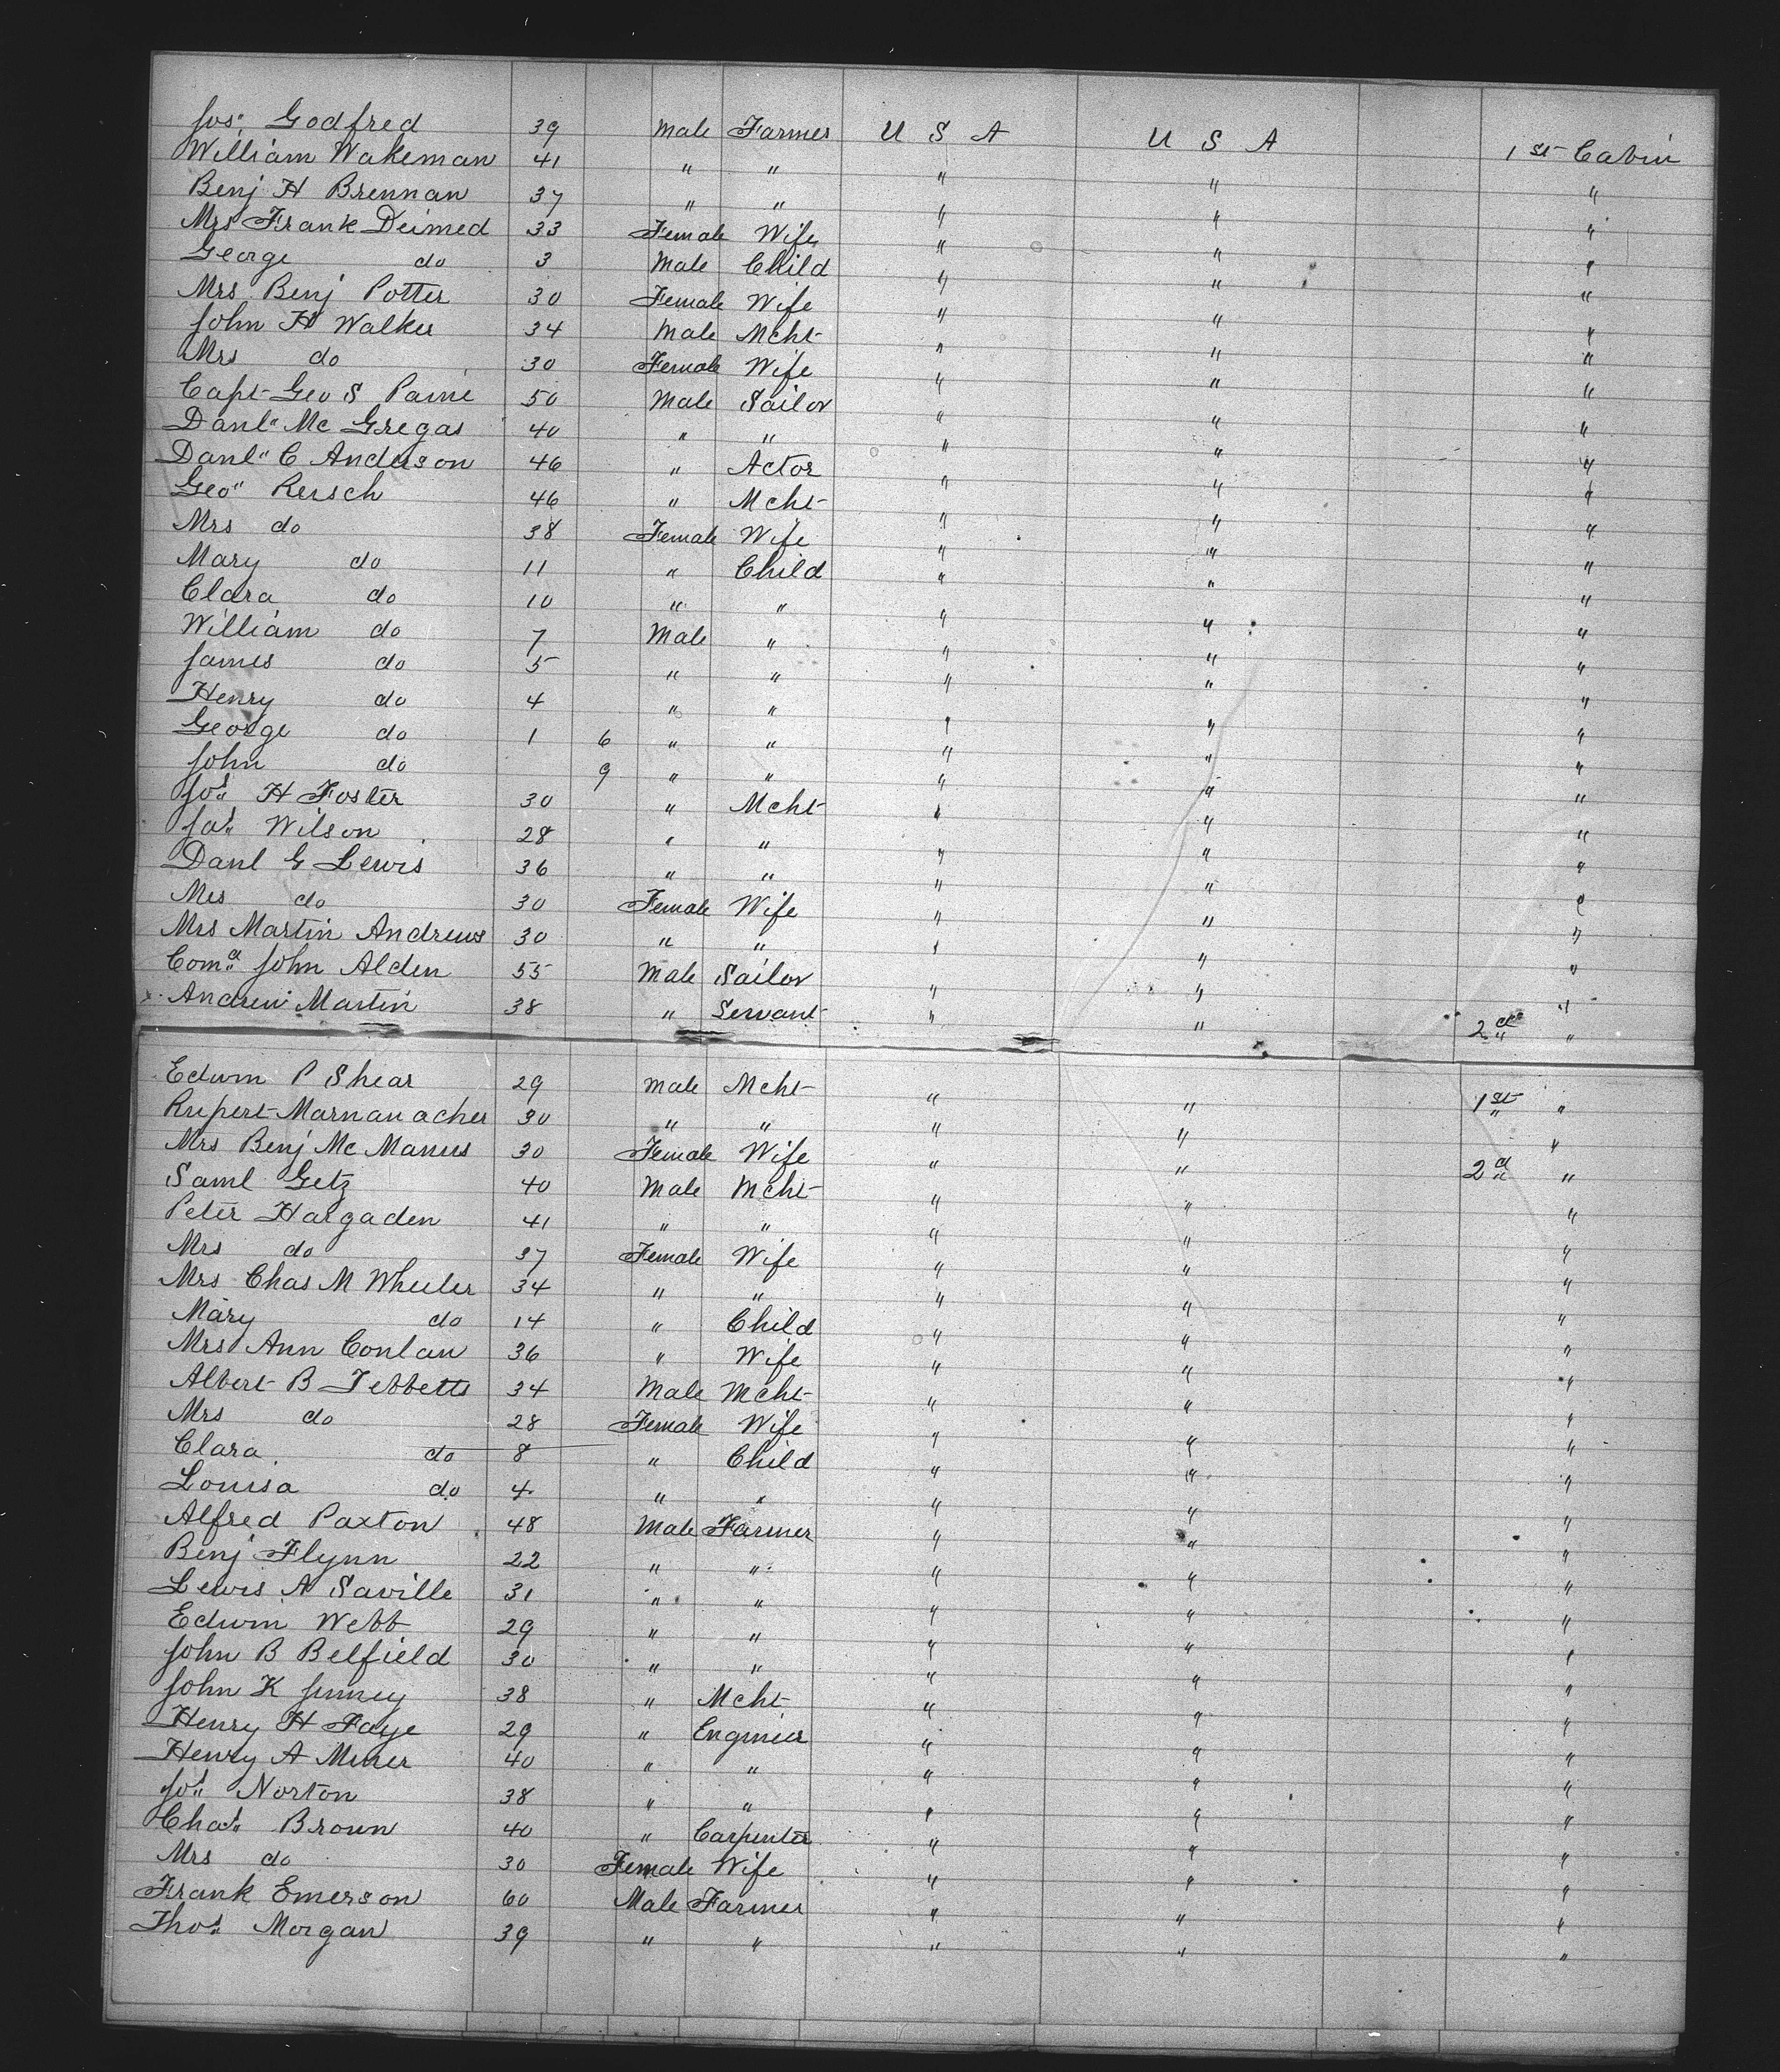 Jos. Godfred 39 Male Farmer U S A U S A 1st Cabin
William Wakeman 41 " " " " "
Benj H Brennan 37 " " " " "
Mrs Frank Deimed 33 Female Wife " " "
George do 3 Male Child " " "
Mrs Benj Potter 30 Female Wife " " "
John H Walker 34 Male Mcht " " "
Mrs do 30 Female Wife " " "
Capt Geo S Paine 50 Male Sailor " " "
Danl" Mc Gregas 40 " " " " "
Danl" C Anderson 46 " Actor " " "
Geo" Rersch 46 " Mcht " " "
Mrs do 38 Female Wife " " "
Mary do 11 " Child " " "
Clara do 10 " " " " "
William do 7 Male " " " "
James do 5 " " " " "
Henry do 4 " " " " "
George do 1 6 " " " " "
John do 9 " " " " "
Jos H Foster 30 " Mcht " " "
Jas Wilson 28 " " " " "
Danl G Lewis 36 " " " " "
Mrs do 30 Female Wife " " "
Mrs Martin Andrews 30 " " " " "
Comd John Alden 55 Male Sailor " " "
Andrew Martin 38 " Servant " " 2d "
Edwin P Shear 29 Male Mcht " " 1st "
Rupert 30 " " " " "
Mrs Benj Mc Manus 30 Female Wife " " 2d "
Saml Getz 40 Male Mcht " " "
Peter Hargaden 41 " " " " "
Mrs do 37 Female Wife " " "
Mrs Chas M Wheeler 34 " " " " "
Mary do 14 " Child " " "
Mrs Ann Conlan 36 " Wife " " "
Albert B Tebbetts 34 Male Mcht " " "
Mrs do 28 Female Wife " " "
Clara do 8 " Child " " "
Louisa do 4 " " " " "
Alfred Paxton 48 Male Farmer " " "
Benj Flynn 22 " " " " "
Lewis A Saville 31 " " " " "
Edwin Webb 29 " " " " "
John B Belfield 30 " " " " "
John K Jinney 38 " Mcht " " "
Henry H Faye 29 " Engineer " " "
Henry A Miner 40 " " " " "
Jos Norton 38 " " " " "
Chas Broun 40 " Carpenter " " "
Mrs do 30 Female Wife " " "
Frank Emerson 60 Male Farmer " " "
Thos Morgan 39 " " " " "